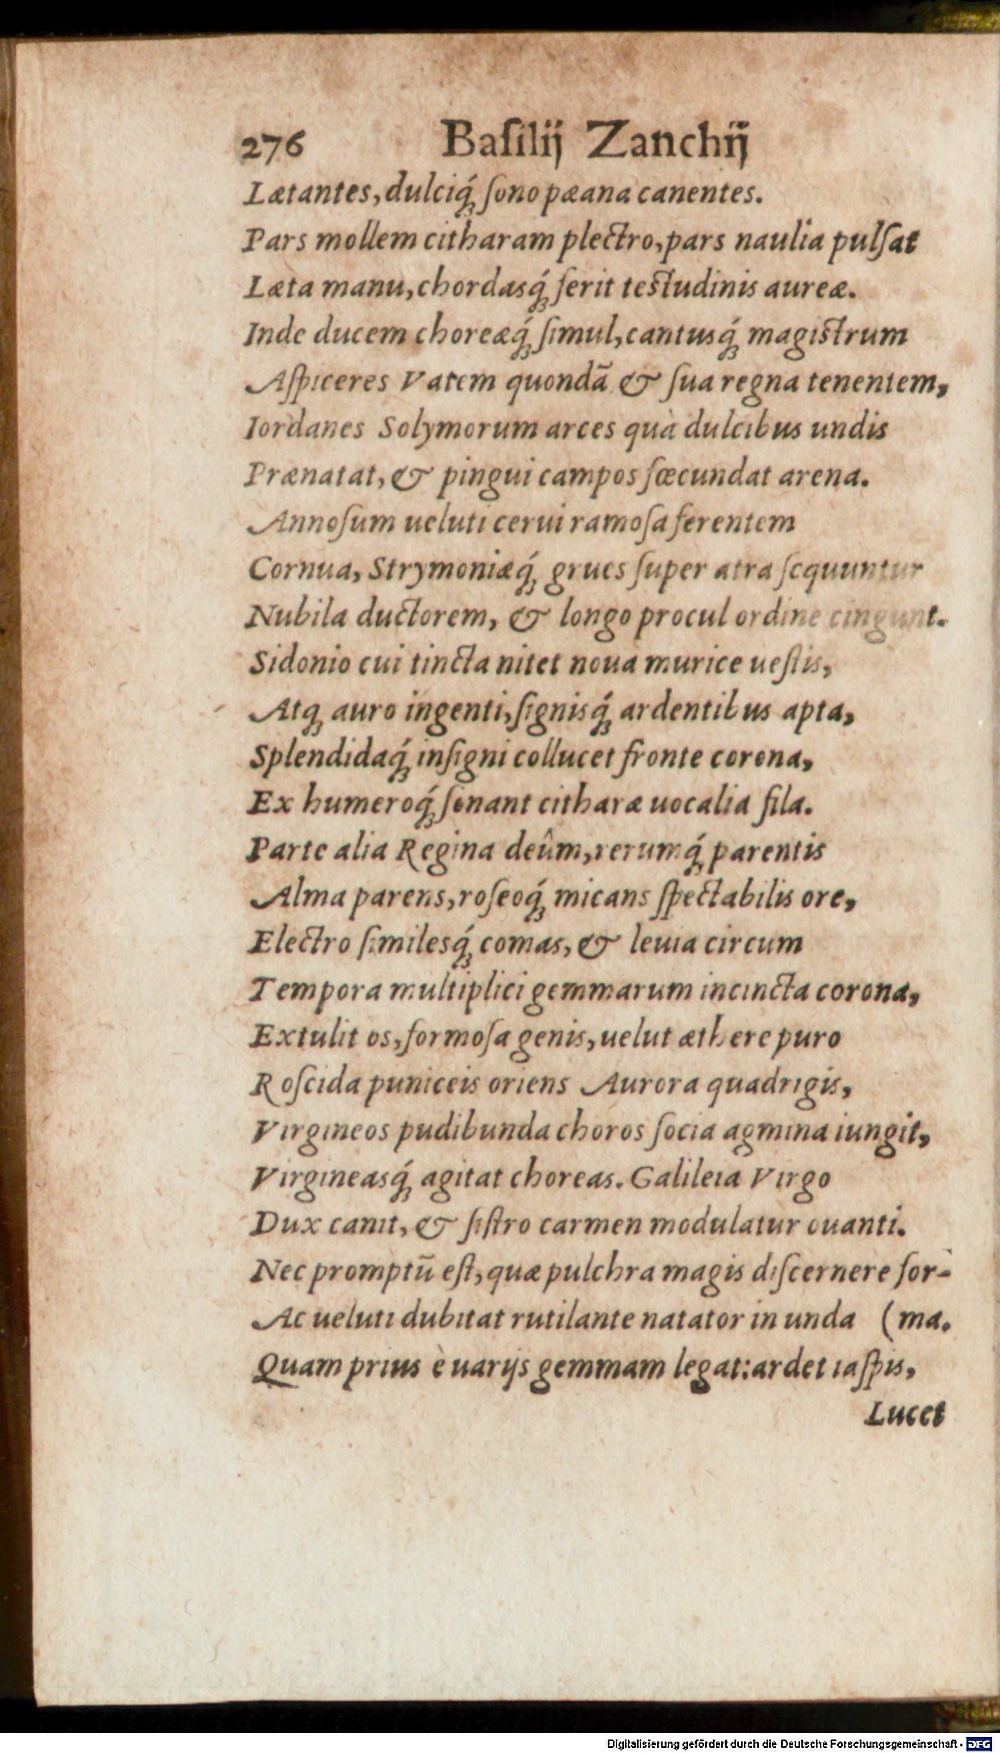 276 Baſilij Zanchij
Lætantes, dulciq́; ſono pæana canentes.
Pars mollem citharam plectro, pars naulia pulſat
Læta manu, chordasq́; ferit teſtudinis aureæ.
Inde ducem choreæq́; ſimul, cantusq́; magiſtrum
Aſpiceres Vatem quondã & ſua regna tenentem,
Iordanes Solymorum arces quà dulcibus undis
Prænatat, & pingui campos fœcundat arena.
Annoſum ueluti cerui ramoſa ferentem
Cornua, Strymoniæq́; grues ſuper atra ſequuntur
Nubila ductorem, & longo procul ordine cingunt.
Sidonio cui tincta nitet noua murice ueſtis,
Atq; auro ingenti, ſignisq́; ardentibus apta,
Splendidaq́; inſigni collucet fronte corona,
Ex humeroq́; ſonant citharæ uocalia fila.
Parte alia Regina deûm, rerumq́; parentis
Alma parens, roſeoq́; micans ſpectabilis ore,
Electro ſimilesq́; comas, & leuia circum
Tempora multiplici gemmarum incincta corona,
Extulit os, formoſa genis, uelut æthere puro
Roſcida puniceis oriens Aurora quadrigis,
Virgineos pudibunda choros ſocia agmina iungit,
Virgineasq́; agitat choreas. Galileia Virgo
Dux canit, & ſiſtro carmen modulatur ouanti.
Nec promptũ eſt, quæ pulchra magis diſcernere for-
Ac ueluti dubitat rutilante natator in unda (ma.
Quam prius è uarijs gemmam legat: ardet iaſpis,
Lucet
Digitalisierung gefördert durch die Deutsche Forschungsgemeinschaft - DFG